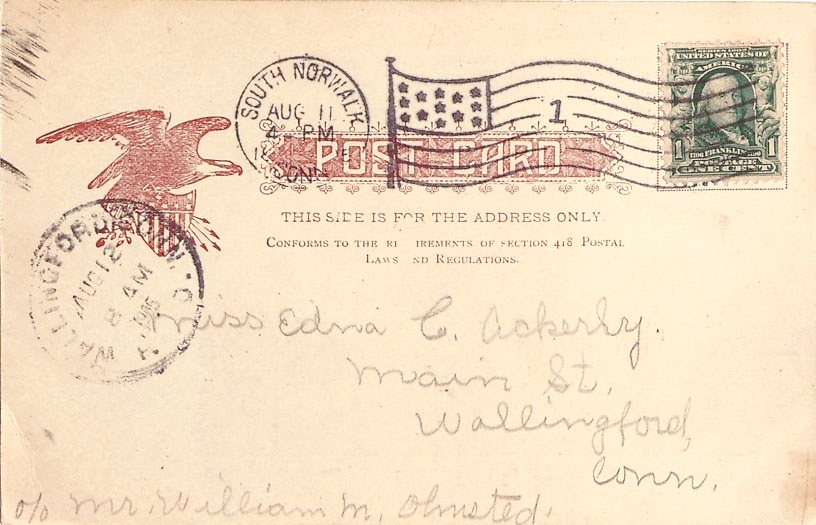 SOUTH NORWALK
AUG 11
4 - PM
CONN
1
SERIES 1902
UNITED STATES OF
AMERICA
1706 FRANKLIN 1790
1 POSTAGE 1
ONE CENT
POST CARD
THIS SIDE IS FOR THE ADDRESS ONLY.
CONFORMS TO THE RE IREMENTS OF SECTION 418 POSTAL
LAWS ND REGULATIONS.
WALLINGFORD CONN.
AUG 12
8 AM
Miss Edna C. Ackerly.
Main St.
Wallingford,
Conn.
c/o Mr. William M. Olmsted.